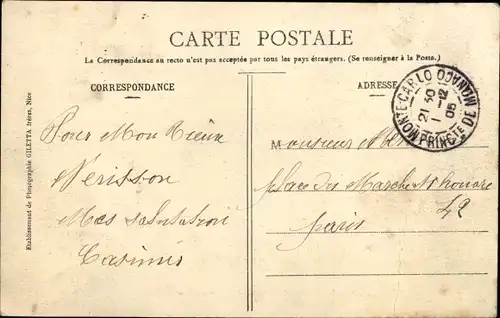 CARTE POSTALE
La Correspondance au recto n'est pas acceptée par tous les pays étrangers. (Se renseigner à la Poste.)
CORRESPONDANCE
ADRESSE
MONTE-CARLO
21 30
1 -12
05
PRINCTÉ DE MONACO
Pour Mon Vieux
Vérisson
Mes salutations
Casimir
Monsieur
place du Marché St honoré
42
paris
Etablissement de Photographie GILETTA frères, Nice